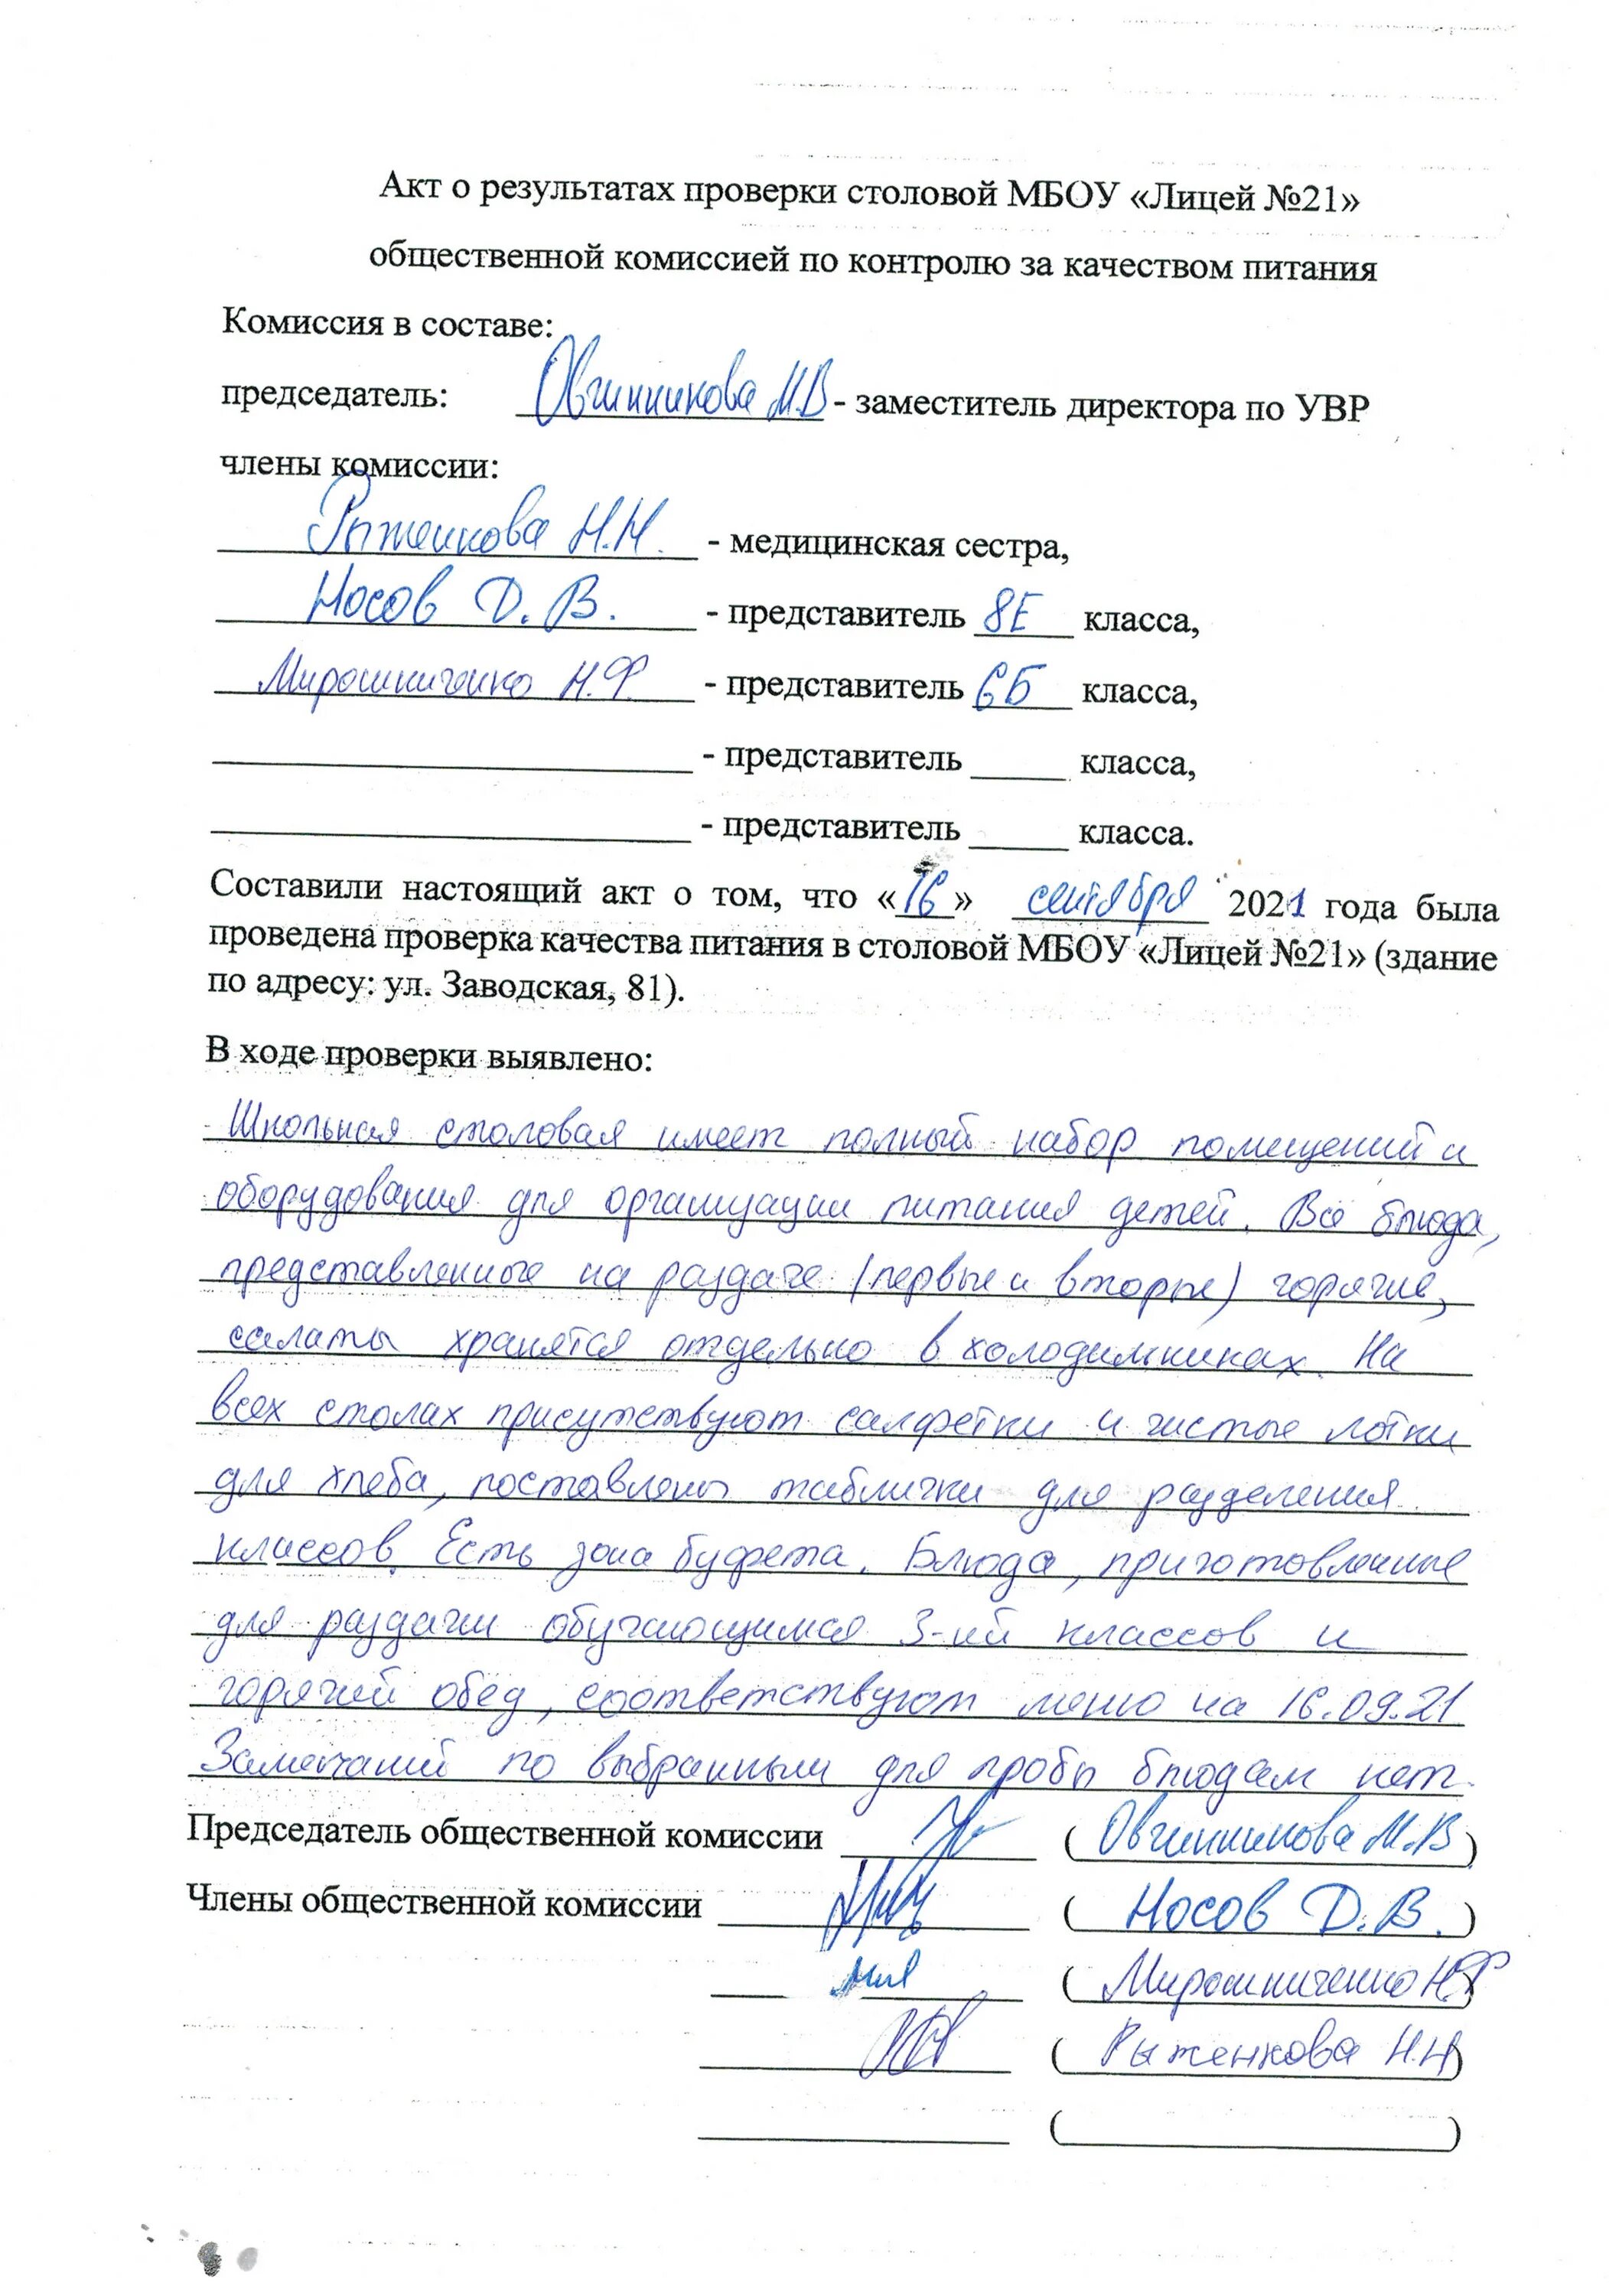 Акт о результатах проверки столовой МБОУ «Лицей №21»
общественной комиссией по контролю за качеством питания
Комиссия в составе:
председатель: Овчинникова М.В - заместитель директора по УВР
члены комиссии:
Рыженкова Н.Н. - медицинская сестра,
Носов Д.В. - представитель 8Е класса,
Мирошниченко Н.Ф. - представитель 6Б класса,
- представитель _____ класса,
- представитель _____ класса.
Составили настоящий акт о том, что «16» сентября 2021 года была
проведена проверка качества питания в столовой МБОУ «Лицей №21» (здание
по адресу: ул. Заводская, 81).
В ходе проверки выявлено:
Школьная столовая имеет полный набор помещений и
оборудования для организации питания детей. Все блюда,
представленные на раздаче (первые и вторые) горячие,
салаты хранятся отдельно в холодильниках. На
всех столах присутствуют салфетки и чистые лотки
для хлеба, поставлены таблички для разделения
классов. Есть зона буфета. Блюда, приготовленные
для раздачи обучающимся 3-ий классов и
горячий обед, соответствуют меню на 16.09.21
Замечаний по выбранным для пробы блюдам нет.
Председатель общественной комиссии (Овчинникова М.В)
Члены общественной комиссии (Носов Д.В.)
(Мирошниченко Н.Ф)
(Рыженкова Н.Н)
( )